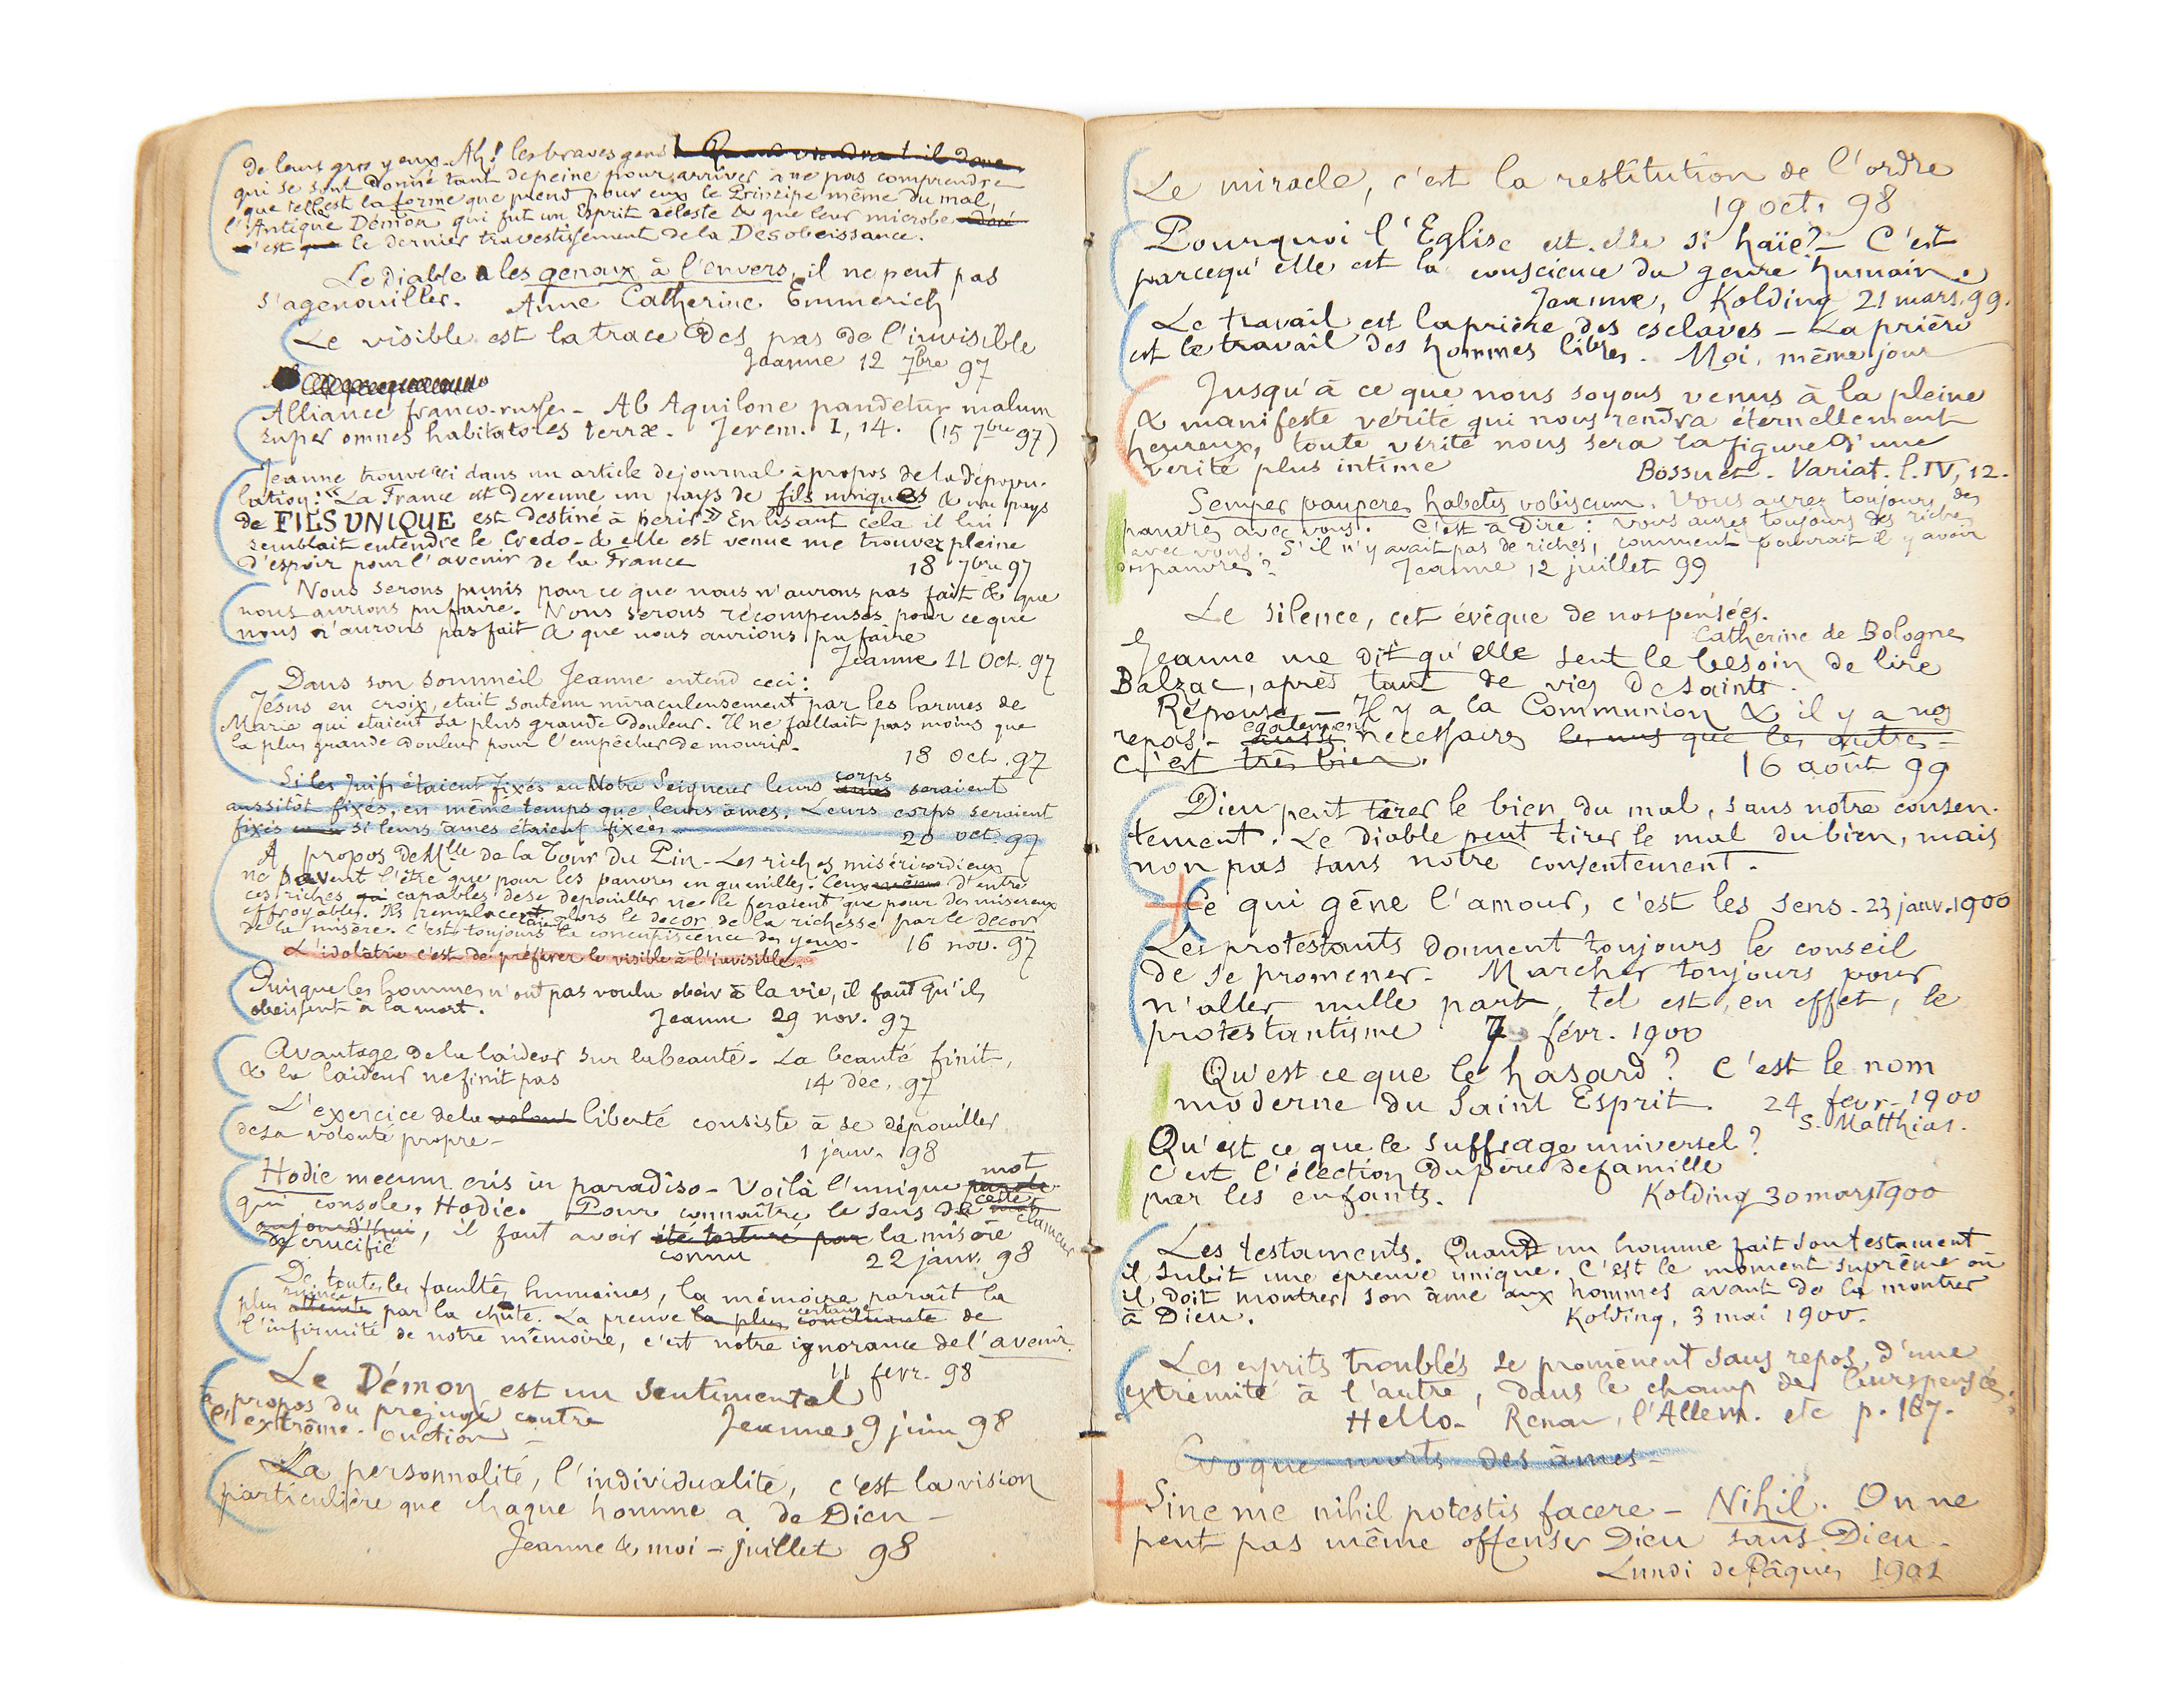 de leurs gros yeux. Ah! les braves gens! Quand viendra-t-il donc
qui se sont donné tant de peine pour arriver à ne pas comprendre
que telle est la forme que prend pour eux le Principe même du mal,
l'Antique Démon qui fut un Esprit céleste & que leur microbe adoré
c'est que le dernier travestissement de la Désobéissance.
Le diable a les genoux à l'envers, il ne peut pas
s'agenouiller. Anne Catherine Emmerich
Le visible est la trace des pas de l'invisible
Jeanne 12 7bre 97
Alliance franco-russe - Ab Aquilone pandetur malum
super omnes habitatores terræ. Jerem. I, 14. (15 7bre 97)
Jeanne trouve ceci dans un article de journal à propos de la dépopu-
lation: « La France est devenue un pays de fils uniques & un pays
de FILS UNIQUE est destiné à périr » En lisant cela il lui
semblait entendre le Credo - & elle est venue me trouver pleine
d'espoir pour l'avenir de la France 18 7bre 97
Nous serons punis pour ce que nous n'aurons pas fait & que
nous aurions pu faire. Nous serons récompensés pour ce que
nous n'aurons pas fait & que nous aurions pu faire
Jeanne 11 Oct. 97
Dans son sommeil Jeanne entend ceci:
Jésus en croix, était soutenu miraculeusement par les larmes de
Marie qui étaient sa plus grande douleur. Il ne fallait pas moins que
la plus grande douleur pour l'empêcher de mourir.
18 oct. 97
Si les Juifs étaient fixés en Notre Seigneur leurs âmes corps seraient
aussitôt fixés, en même temps que leurs âmes. Leurs corps seraient
fixés si leurs âmes étaient fixées. 20 oct. 97
A propos de Mlle de la Tour du Pin - Les riches miséricordieux
ne peuvent l'être que pour les pauvres en guenilles. Ceux même d'entre
ces riches qui capables de se dépouiller ne le feraient que pour des miséreux
effroyables. Ils remplacent alors le decor de la richesse par le decor
de la misère. C'est toujours la concupiscence des yeux. 16 nov. 97
L'idolâtrie c'est de préférer le visible à l'invisible.
Puisque les hommes n'ont pas voulu obéir à la vie, il faut qu'ils
obéissent à la mort. Jeanne 29 nov. 97
Avantage de la laideur sur la beauté. La beauté finit,
& la laideur ne finit pas 14 déc. 97
L'exercice de la volont liberté consiste à se dépouiller
de sa volonté propre - 1 janv. 98
Hodie mecum eris in paradiso - Voilà l'unique parole mot
qui console. Hodie. Pour connaître le sens de cette clameur
aujourd'hui, il faut avoir été torturé par la misère
de crucifié connu 22 janv. 98
De toutes les facultés humaines, la mémoire paraît la
plus atteinte ruinée par la chute. La preuve la plus concluante certaine de
l'infirmité de notre mémoire, c'est notre ignorance de l'avenir.
11 fevr. 98
Le Démon est un sentimental
à propos du préjugé contre
l'extrême-onction - Jeanne 9 juin 98
La personnalité, l'individualité, c'est la vision
particulière que chaque homme a de Dieu -
Jeanne & moi - juillet 98
Le miracle, c'est la restitution de l'ordre
19 oct. 98
Pourquoi l'Eglise est-elle si haïe? - C'est
parcequ'elle est la conscience du genre humain.
Jeanne, Kolding 21 mars. 99.
Le travail est la prière des esclaves - La prière
est le travail des hommes libres. Moi, même jour
Jusqu'à ce que nous soyons venus à la pleine
& manifeste vérité qui nous rendra éternellement
heureux, toute vérité nous sera la figure d'une
vérité plus intime Bossuet. Variat. l. IV, 12.
Semper pauperes habetis vobiscum. Vous aurez toujours des
pauvres avec vous. C'est à dire: Vous aurez toujours des riches
avec vous. S'il n'y avait pas de riches, comment pourrait-il y avoir
des pauvres? Jeanne 12 juillet 99
Le silence, cet évêque de nos pensées.
Catherine de Bologne
Jeanne me dit qu'elle sent le besoin de lire
Balzac, après tant de vies de Saints.
Réponse - Il y a la Communion & il y a nos
repas - aussi également nécessaires les uns que les autres -
C'est très bien. 16 août 99
Dieu peut tirer le bien du mal, sans notre consen-
tement. Le diable peut tirer le mal du bien, mais
non pas sans notre consentement.
Ce qui gêne l'amour, c'est les sens. 23 janv. 1900
Les protestants donnent toujours le conseil
de se promener. Marcher toujours pour
n'aller nulle part, tel est, en effet, le
protestantisme 7 févr. 1900
Qu'est ce que le hasard? C'est le nom
moderne du Saint Esprit. 24 fevr. 1900
S. Matthias.
Qu'est ce que le suffrage universel?
C'est l'élection du père de famille
par les enfants. Kolding 30 mars 1900
Les testaments. Quand un homme fait son testament
il subit une épreuve unique. C'est le moment suprême où
il doit montrer son âme aux hommes avant de la montrer
à Dieu. Kolding, 3 mai 1900.
Les esprits troublés se promènent sans repos, d'une
extrémité à l'autre, dans le champ de leurs pensées.
Hello. Renan, l'Allem. etc p. 167.
Croque morts des âmes -
Sine me nihil potestis facere - Nihil. On ne
peut pas même offenser Dieu sans Dieu -
Lundi de Pâques 1901